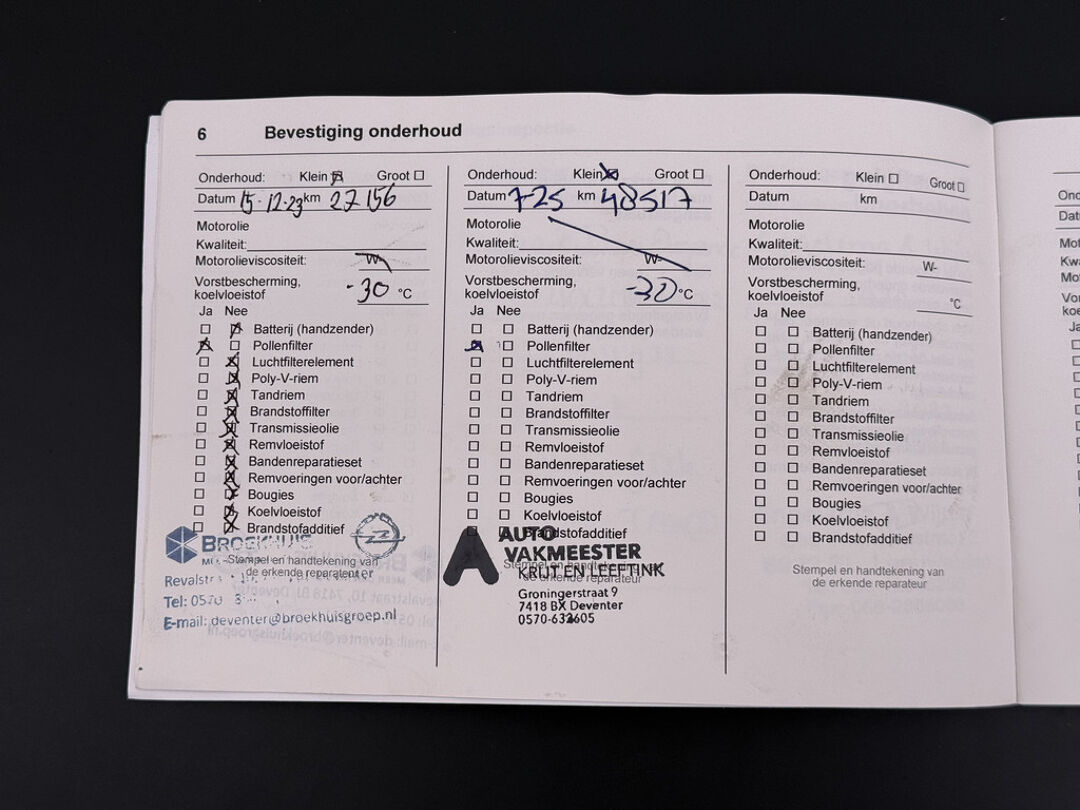 6 Bevestiging onderhoud
Onderhoud: Klein Groot
Datum 15-12-23 km 27156
Motorolie
Kwaliteit:
Motorolieviscositeit: W-
Vorstbescherming,
koelvloeistof -30 °C
Ja Nee
Batterij (handzender)
Pollenfilter
Luchtfilterelement
Poly-V-riem
Tandriem
Brandstoffilter
Transmissieolie
Remvloeistof
Bandenreparatieset
Remvoeringen voor/achter
Bougies
Koelvloeistof
Brandstofadditief
BROEKHUIS
Stempel en handtekening van
de erkende reparateur
Tel: 0570
E-mail: deventer@broekhuisgroep.nl
Onderhoud: Klein Groot
Datum 7-25 km 48517
Motorolie
Kwaliteit:
Motorolieviscositeit: W-
Vorstbescherming,
koelvloeistof -30 °C
Ja Nee
Batterij (handzender)
Pollenfilter
Luchtfilterelement
Poly-V-riem
Tandriem
Brandstoffilter
Transmissieolie
Remvloeistof
Bandenreparatieset
Remvoeringen voor/achter
Bougies
Koelvloeistof
Brandstofadditief
AUTO
VAKMEESTER
KRIJT EN LEEFTINK
Stempel en handtekening van
de erkende reparateur
Groningerstraat 9
7418 BX Deventer
0570-632605
Onderhoud: Klein Groot
Datum km
Motorolie
Kwaliteit:
Motorolieviscositeit: W-
Vorstbescherming,
koelvloeistof °C
Ja Nee
Batterij (handzender)
Pollenfilter
Luchtfilterelement
Poly-V-riem
Tandriem
Brandstoffilter
Transmissieolie
Remvloeistof
Bandenreparatieset
Remvoeringen voor/achter
Bougies
Koelvloeistof
Brandstofadditief
Stempel en handtekening van
de erkende reparateur